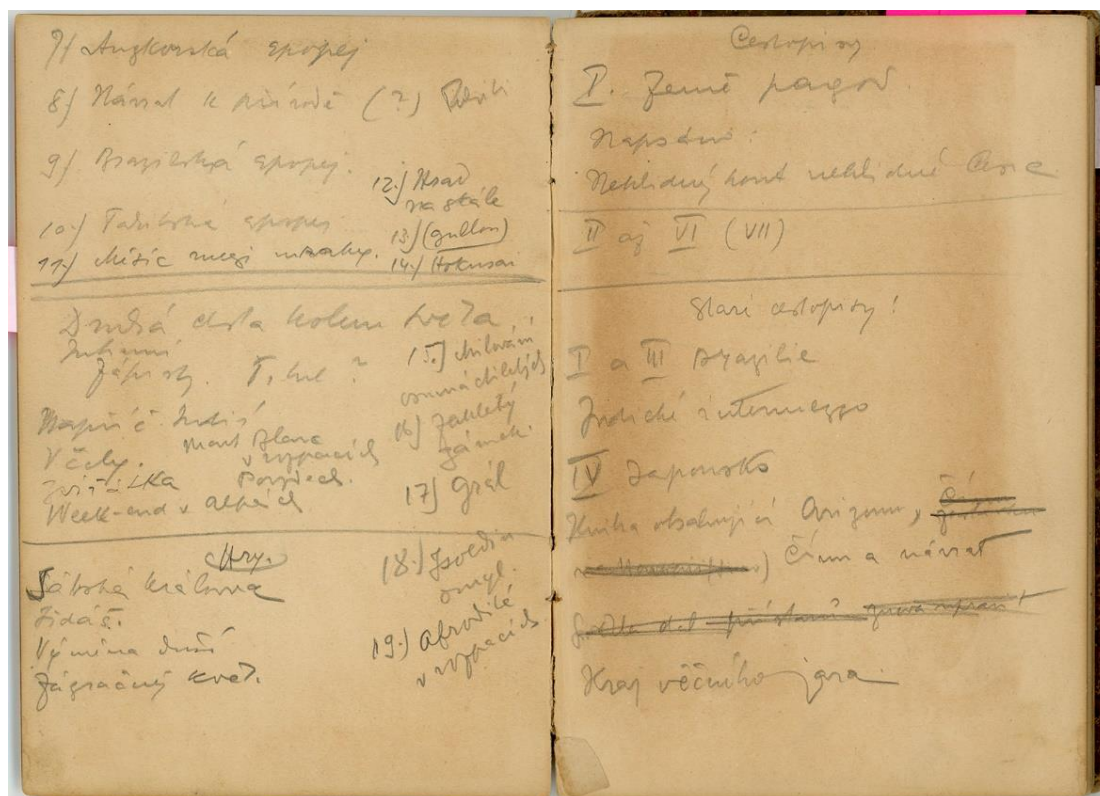 7.) Angkorská epopej
8.) Návrat k přírodě (?) Tahiti
9.) Brazilská epopej.
10.) Tahitská epopej
11.) Měsíc mezi mraky.
12.) Hrad
na skále
13.) (gullon)
14.) Hokusai
Druhá cesta kolem světa
Intimní
zápisky. ?
Napříč Indií
Včely. Mont Blanc
v rozpacích
Week-end v Alpách
15.) Milování
16.) Zakletý
zámek.
17.) Grál
Hry.
Sábská královna
Jidáš.
Výměna duší
Zázračný květ.
18.) Isoldin
omyl.
19.) Afrodité
v rozpacích
Cestopisy
I. Země pagod
Napsáno:
Neklidný kout neklidné Asie
II až VI (VII)
Staré cestopisy!
I a III Brazilie
Indické intermezzo
IV Japonsko
Kniha obsahující Arizonu,
Čínu a návrat
Kraj věčného jara